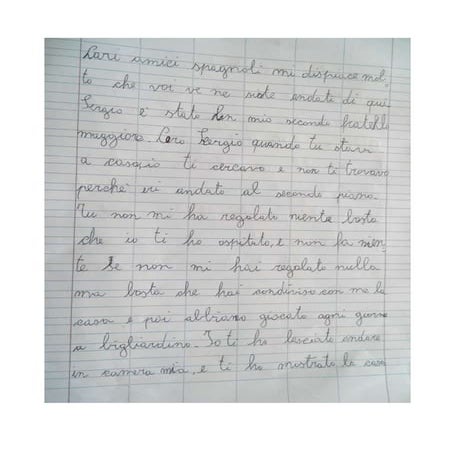 Cari amici spagnoli mi dispiace mol-
to che voi ve ne siete andate di qui
Sergio è stato un mio secondo fratello
maggiore. Caro Sergio quando tu stavi
a casa io ti cercavo e non ti trovavo
perchè eri andato al secondo piano.
Tu non mi ha regalato niente basta
che io ti ho ospitato, e non fa nien-
te se non mi hai regalato nulla
ma basta che hai condiviso con me la
casa e poi abbiamo giocato ogni giorno
a bigliardino. Io ti ho lasciato andare
in camera mia, e ti ho mostrato la casa